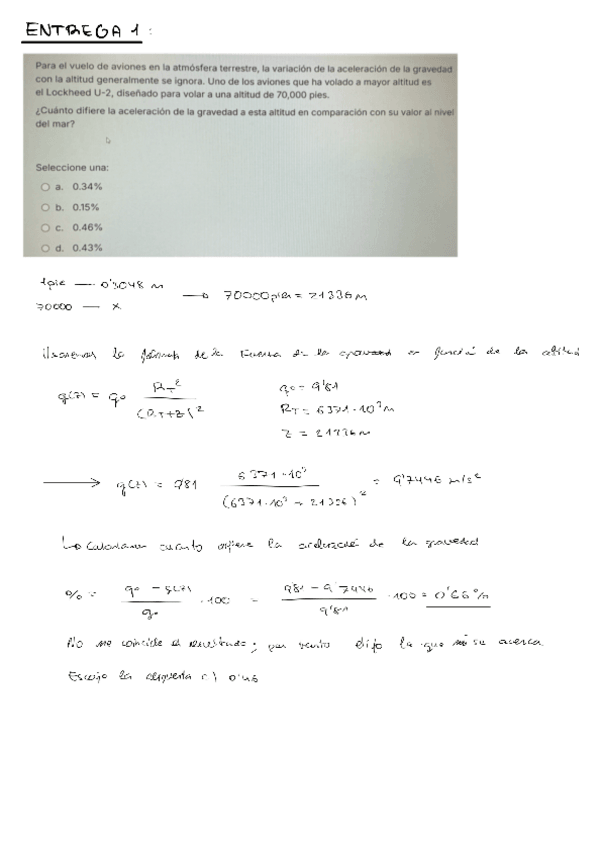 ENTREGA 1:
Para el vuelo de aviones en la atmósfera terrestre, la variación de la aceleración de la gravedad
con la altitud generalmente se ignora. Uno de los aviones que ha volado a mayor altitud es
el Lockheed U-2, diseñado para volar a una altitud de 70,000 pies.
¿Cuánto difiere la aceleración de la gravedad a esta altitud en comparación con su valor al nivel
del mar?
Seleccione una:
a. 0.34%
b. 0.15%
c. 0.46%
d. 0.43%
1pie — 0'3048 m
70000 — x → 70000 pies = 21336 m
la fórmula de la fuerza de la gravedad en función de la altitud
g(z) = g0 RT² / (RT+z)²
g0 = 9'81
RT = 6371·10³ m
z = 21336 m
→ g(z) = 9'81 6371·10³ / (6371·10³ + 21336)² = 9'7446 m/s²
↳ Calculamos cuanto difiere la aceleración de la gravedad
% = g0 - g(z) / g0 · 100 = 9'81 - 9'7446 / 9'81 · 100 = 0'66%
No me coincide el resultado; por la que más se acerca
Escojo la respuesta c) 0'46